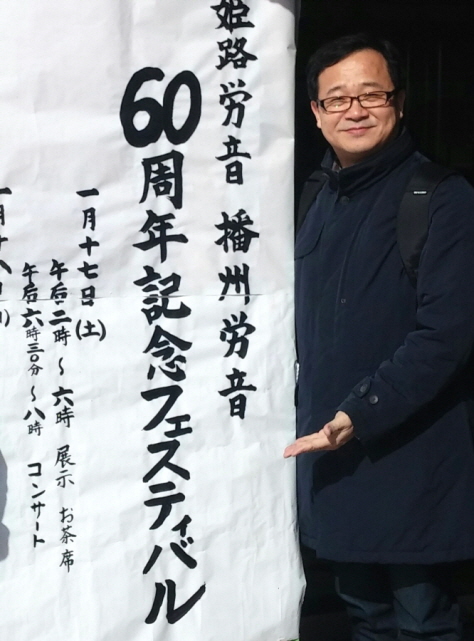 姫路労音 播州労音
60周年記念フェスティバル
一月十七日(土)
午后二時～六時 展示 お茶席
午后六時三〇分～八時 コンサート